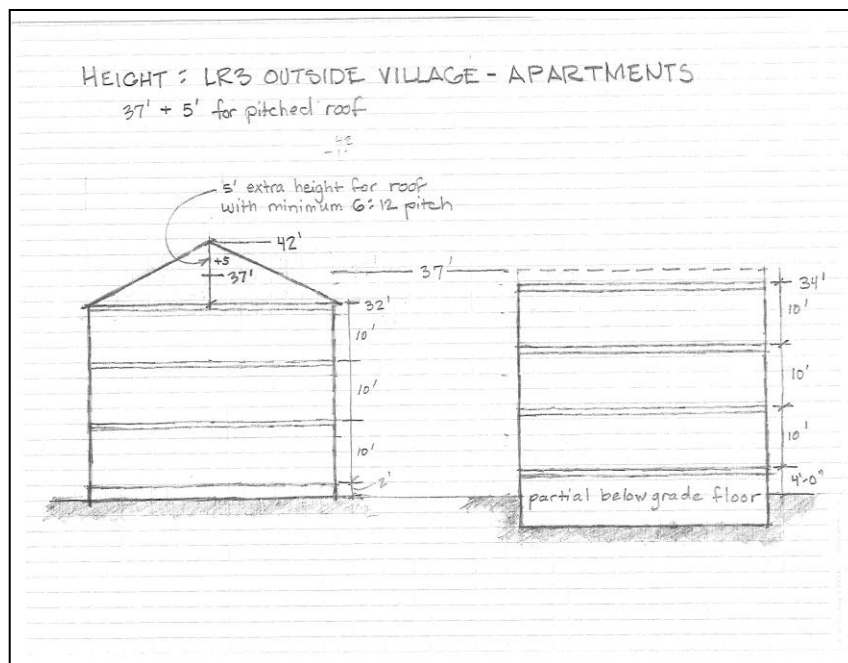 HEIGHT : LR3 OUTSIDE VILLAGE - APARTMENTS
37' + 5' for pitched roof
42
5' extra height for roof
with minimum 6:12 pitch
42'
+5
37'
32'
10'
10'
10'
2'
37'
34'
10'
10'
10'
4'-0"
partial below grade floor